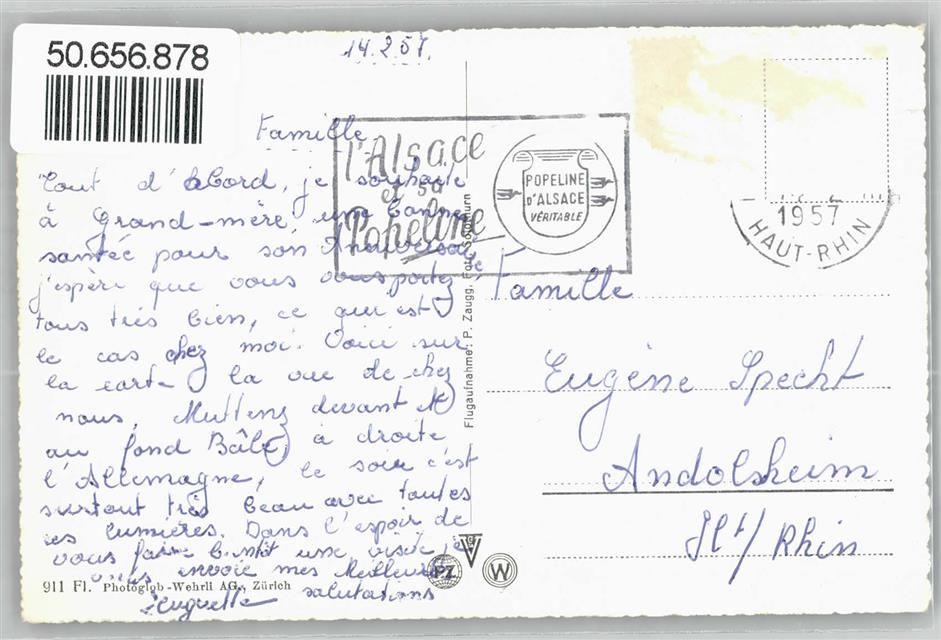 50.656.878
14.2.57.
Famille
Tout d'abord, je souhaite
à Grand-mère, une bonne
santée pour son Anniversaire
j'espère que vous vous portez
tous très bien, ce qui est
le cas chez moi. Voici sur
la carte la vue de chez
nous, Muttenz devant
au fond Bâle, à droite
l'Allemagne, le soir c'est
surtout très beau avec toutes
ses lumières. Dans l'espoir de
vous faire bientôt une visite, je
vous envoie mes meilleures
salutations
Huguette
l'Alsace
et sa
Popeline
POPELINE
D'ALSACE
VÉRITABLE
1957
HAUT-RHIN
Famille
Eugène Specht
Andolsheim
Ht/Rhin
Flugaufnahme: P. Zaugg, Solothurn
911 Fl. Photoglob-Wehrli AG., Zürich
PZ
W